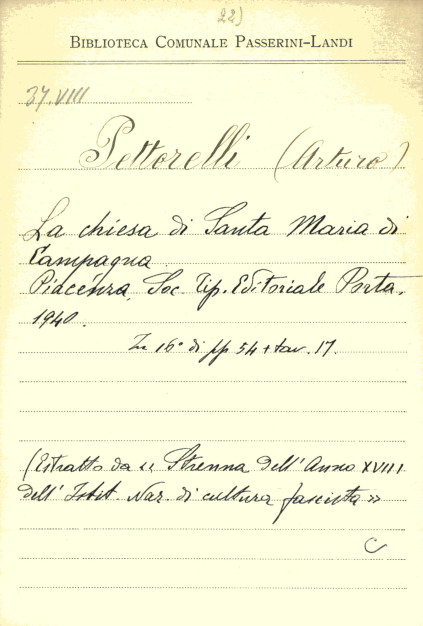 22)
BIBLIOTECA COMUNALE PASSERINI-LANDI
37.VIII
Pettorelli (Arturo)
La chiesa di Santa Maria di
Campagna.
Piacenza, Soc. Tip. Editoriale Porta.
1940.
In 16° di pp 54 + tav. 17.
(Estratto da « Strenna dell'Anno XVIII
dell' Istit. Naz. di cultura fascista »
C